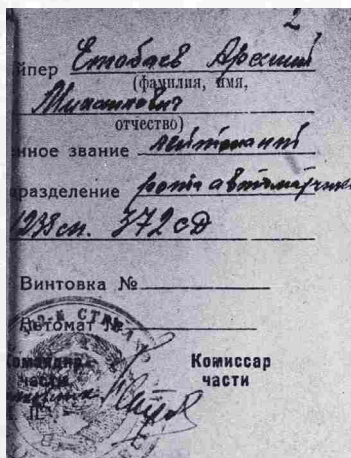 2
йпер Етобаев Арсений
(фамилия, имя,
Михайлович
отчество)
нное звание лейтенант
разделение рота автоматчиков
1238 сп. 372 сд
Винтовка №
Автомат №
Командир
части
Комиссар
части